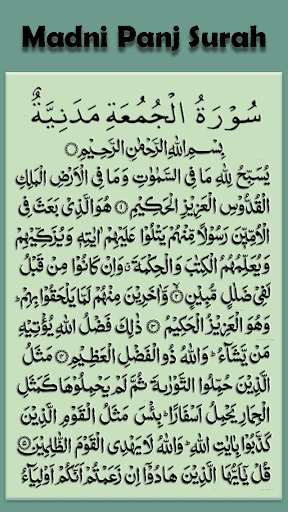 Madni Panj Surah
سُوْرَةُ الْجُمُعَةِ مَدَنِيَّةٌ
بِسْمِ اللّٰهِ الرَّحْمٰنِ الرَّحِيْمِ
يُسَبِّحُ لِلّٰهِ مَا فِى السَّمٰوٰتِ وَمَا فِى الْاَرْضِ الْمَلِكِ
الْقُدُّوْسِ الْعَزِيْزِ الْحَكِيْمِ ۝۱ هُوَ الَّذِىْ بَعَثَ فِى
الْاُمِّيّٖنَ رَسُوْلًا مِّنْهُمْ يَتْلُوْا عَلَيْهِمْ اٰيٰتِهٖ وَيُزَكِّيْهِمْ
وَيُعَلِّمُهُمُ الْكِتٰبَ وَالْحِكْمَةَ ۗ وَاِنْ كَانُوْا مِنْ قَبْلُ
لَفِىْ ضَلٰلٍ مُّبِيْنٍ ۝۲ وَّاٰخَرِيْنَ مِنْهُمْ لَمَّا يَلْحَقُوْا بِهِمْ ؕ
وَهُوَ الْعَزِيْزُ الْحَكِيْمُ ۝۳ ذٰلِكَ فَضْلُ اللّٰهِ يُؤْتِيْهِ
مَنْ يَّشَآءُ ؕ وَاللّٰهُ ذُو الْفَضْلِ الْعَظِيْمِ ۝۴ مَثَلُ
الَّذِيْنَ حُمِّلُوا التَّوْرٰىةَ ثُمَّ لَمْ يَحْمِلُوْهَا كَمَثَلِ
الْحِمَارِ يَحْمِلُ اَسْفَارًا ؕ بِئْسَ مَثَلُ الْقَوْمِ الَّذِيْنَ
كَذَّبُوْا بِاٰيٰتِ اللّٰهِ ؕ وَاللّٰهُ لَا يَهْدِى الْقَوْمَ الظّٰلِمِيْنَ ۝۵
قُلْ يٰۤاَيُّهَا الَّذِيْنَ هَادُوْۤا اِنْ زَعَمْتُمْ اَنَّكُمْ اَوْلِيَآءُ